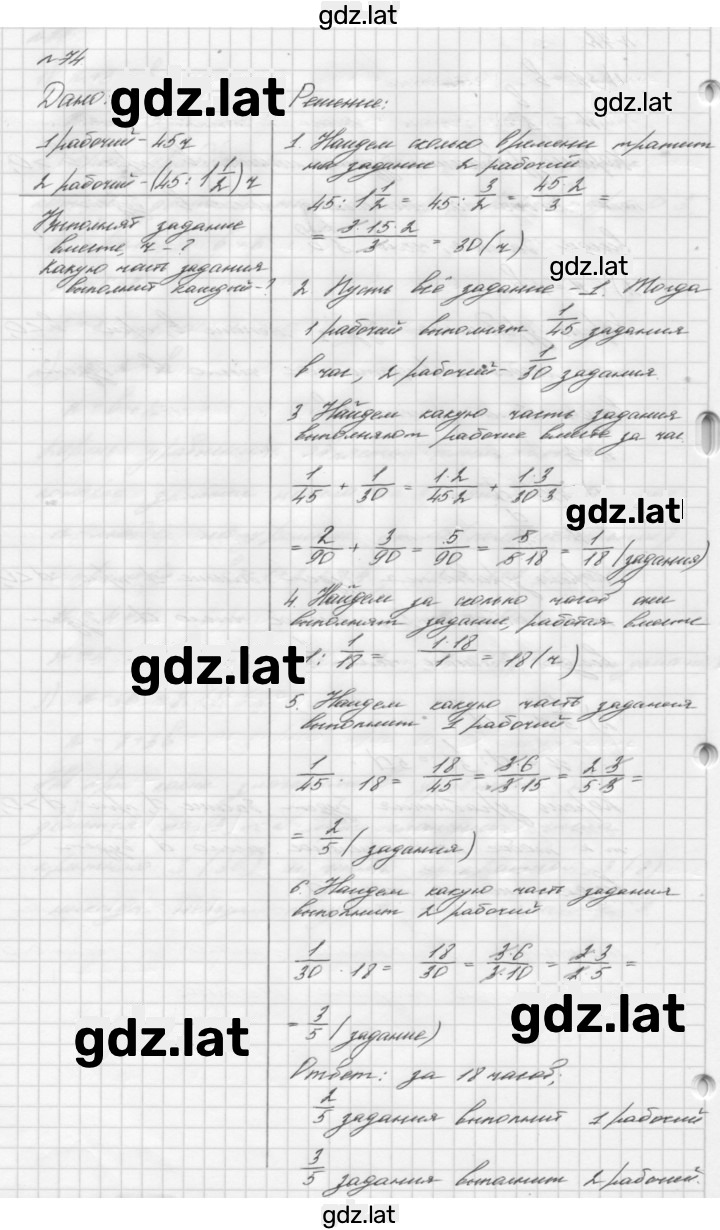 gdz.lat
№ 74
Дано: gdz.lat
1 рабочий - 45 ч
2 рабочий - (45 : 1 1/2) ч
Выполнят задание
вместе, ч - ?
Какую часть задания
выполнит каждый - ?
Решение: gdz.lat
1. Найдем сколько времени тратит
на задание 2 рабочий
45 : 1 1/2 = 45 : 3/2 = 45·2/3 =
= 3·15·2/3 = 30 (ч)
gdz.lat
2. Пусть всё задание - 1. Тогда
1 рабочий выполнят 1/45 задания
в час, 2 рабочий - 1/30 задания
3 Найдем какую часть задания
выполняют рабочие вместе за час
1/45 + 1/30 = 1·2/45·2 + 1·3/30·3
gdz.lat
= 2/90 + 3/90 = 5/90 = 5/5·18 = 1/18 (задания)
4 Найдем за сколько часов они
выполнят задание, работая вместе
gdz.lat
1 : 1/18 = 1·18/1 = 18 (ч)
5. Найдем какую часть задания
выполнит 1 рабочий
1/45 · 18 = 18/45 = 3·6/3·15 = 2·3/5·3 =
= 2/5 (задания)
6. Найдем какую часть задания
выполнит 2 рабочий
1/30 · 18 = 18/30 = 3·6/3·10 = 2·3/2·5 =
gdz.lat
= 3/5 (задание)
gdz.lat
Ответ: за 18 часов;
2/5 задания выполнит 1 рабочий
3/5 задания выполнит 2 рабочий.
gdz.lat